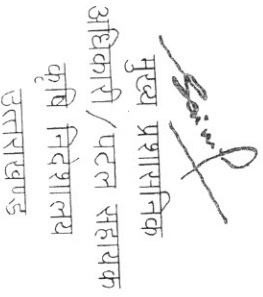 मुख्य प्रशासनिक
अधिकारी/पटल सहायक
कृषि निदेशालय
उत्तराखण्ड